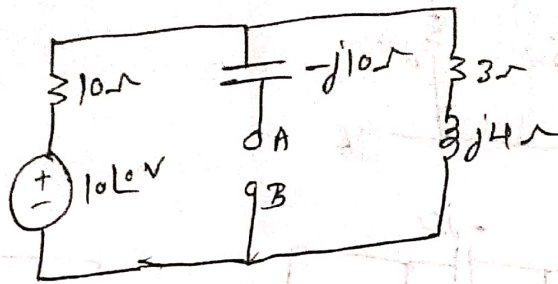 10Ω
-j10Ω
3Ω
A
j4Ω
+
-
10∠0 V
B